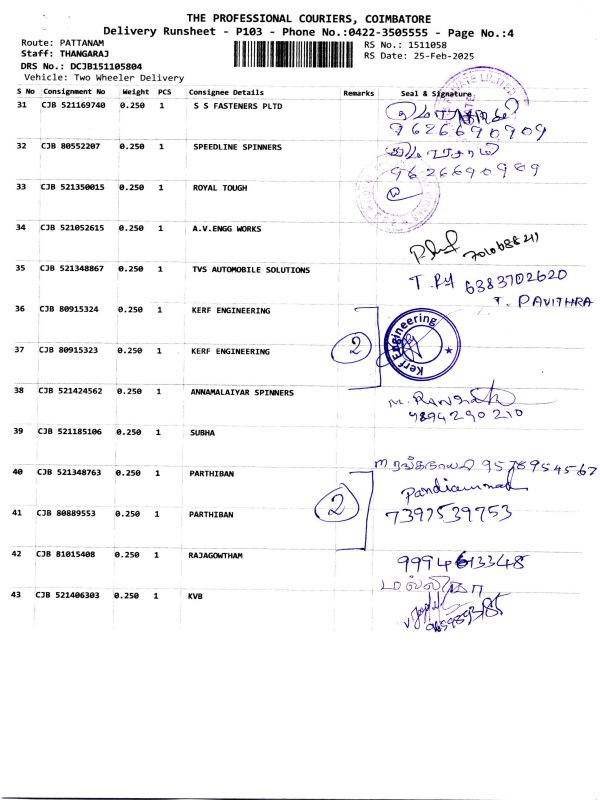 THE PROFESSIONAL COURIERS, COIMBATORE
Delivery Runsheet - P103 - Phone No.:0422-3505555 - Page No.:4
Route: PATTANAM
RS No.: 1511058
Staff: THANGARAJ
RS Date: 25-Feb-2025
DRS No.: DCJB151105804
Vehicle: Two Wheeler Delivery
S No Consignment No Weight PCS Consignee Details Remarks Seal & Signature
31 CJB 521169740 0.250 1 S S FASTENERS PLTD
9626690909
32 CJB 80552207 0.250 1 SPEEDLINE SPINNERS
9626690909
33 CJB 521350015 0.250 1 ROYAL TOUGH
34 CJB 521052615 0.250 1 A.V.ENGG WORKS
35 CJB 521348867 0.250 1 TVS AUTOMOBILE SOLUTIONS
6383702620
T. PAVITHRA
36 CJB 80915324 0.250 1 KERF ENGINEERING
2 Kerf Engineering
37 CJB 80915323 0.250 1 KERF ENGINEERING
38 CJB 521424562 0.250 1 ANNAMALAIYAR SPINNERS
9894290210
39 CJB 521185106 0.250 1 SUBHA
40 CJB 521348763 0.250 1 PARTHIBAN
2
41 CJB 80889553 0.250 1 PARTHIBAN
7397539753
42 CJB 81015408 0.250 1 RAJAGOWTHAM
43 CJB 521406303 0.250 1 KVB
மல்லிகா